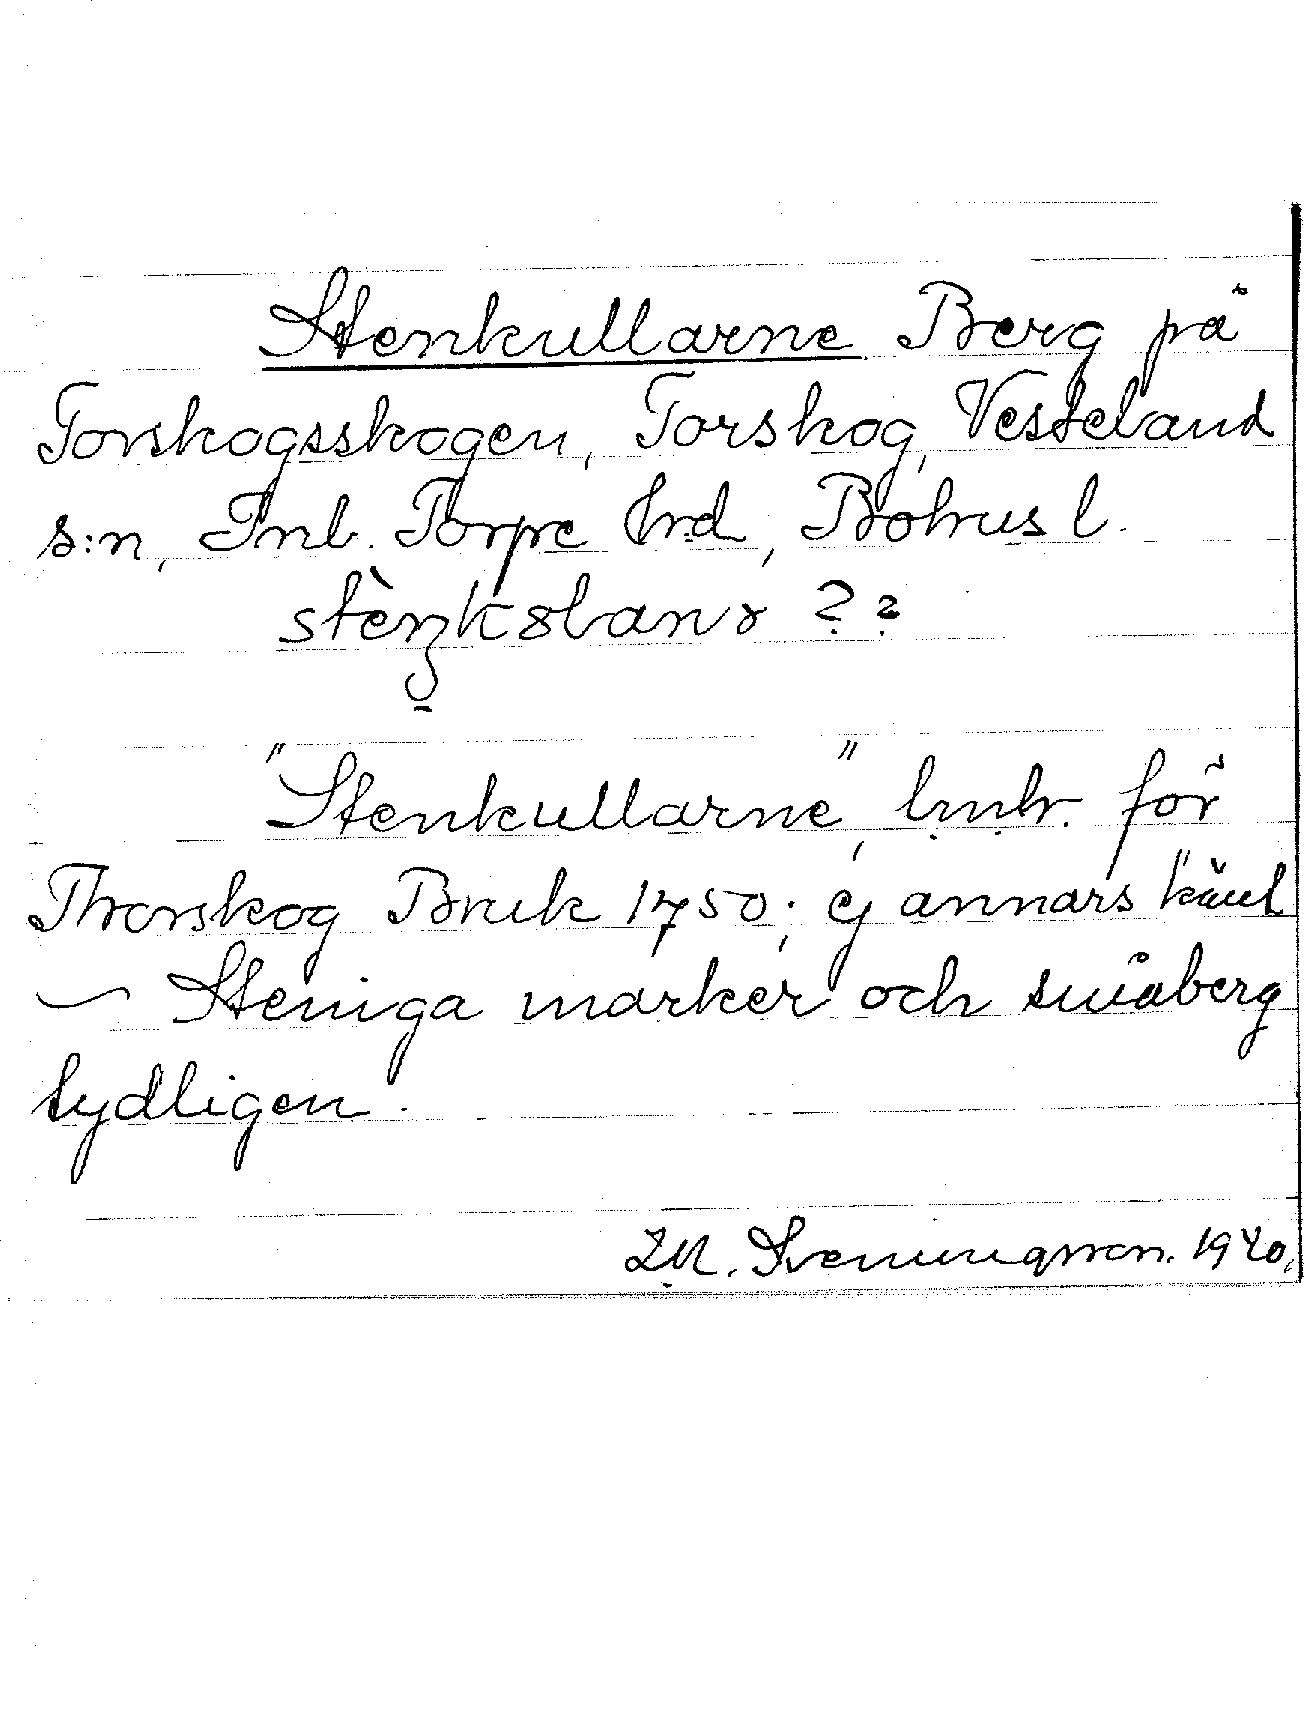 Stenkullarne Berg på
Torskogsskogen, Torskog, Vesteland
s:n, Inl. Torpe hrd, Bohus l.
??
"Stenkullarne", lmhr. för
Thorskog Bruk 1750; ej annars känt
— Steniga marker och småberg
tydligen.
Sveningsson. 1940.